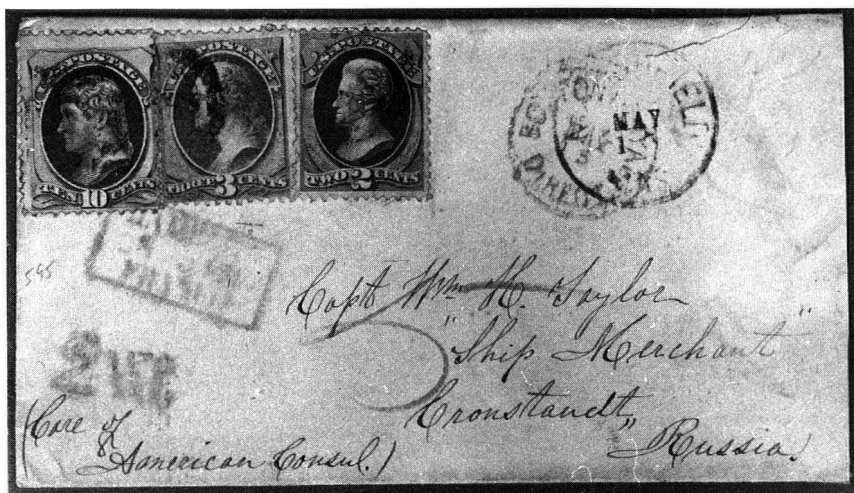 U.S. POSTAGE
TEN 10 CENTS
U.S. POSTAGE
THREE 3 CENTS
U.S. POSTAGE
TWO 2 CENTS
MAY
1
DIRECT
FRANCO
545
2
Capt Wm H. Taylor
"Ship Merchant"
Cronstandt,
"Russia.
(Care of
American Consul.)